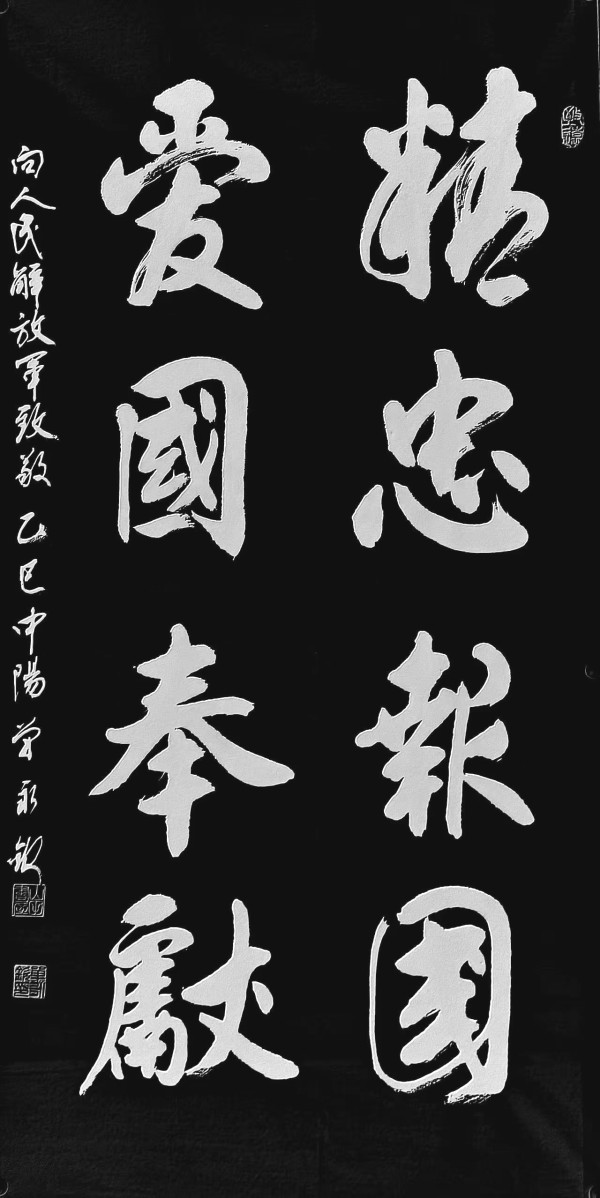 精忠報國
愛國奉獻
向人民解放軍致敬乙巳中陽曾永欽